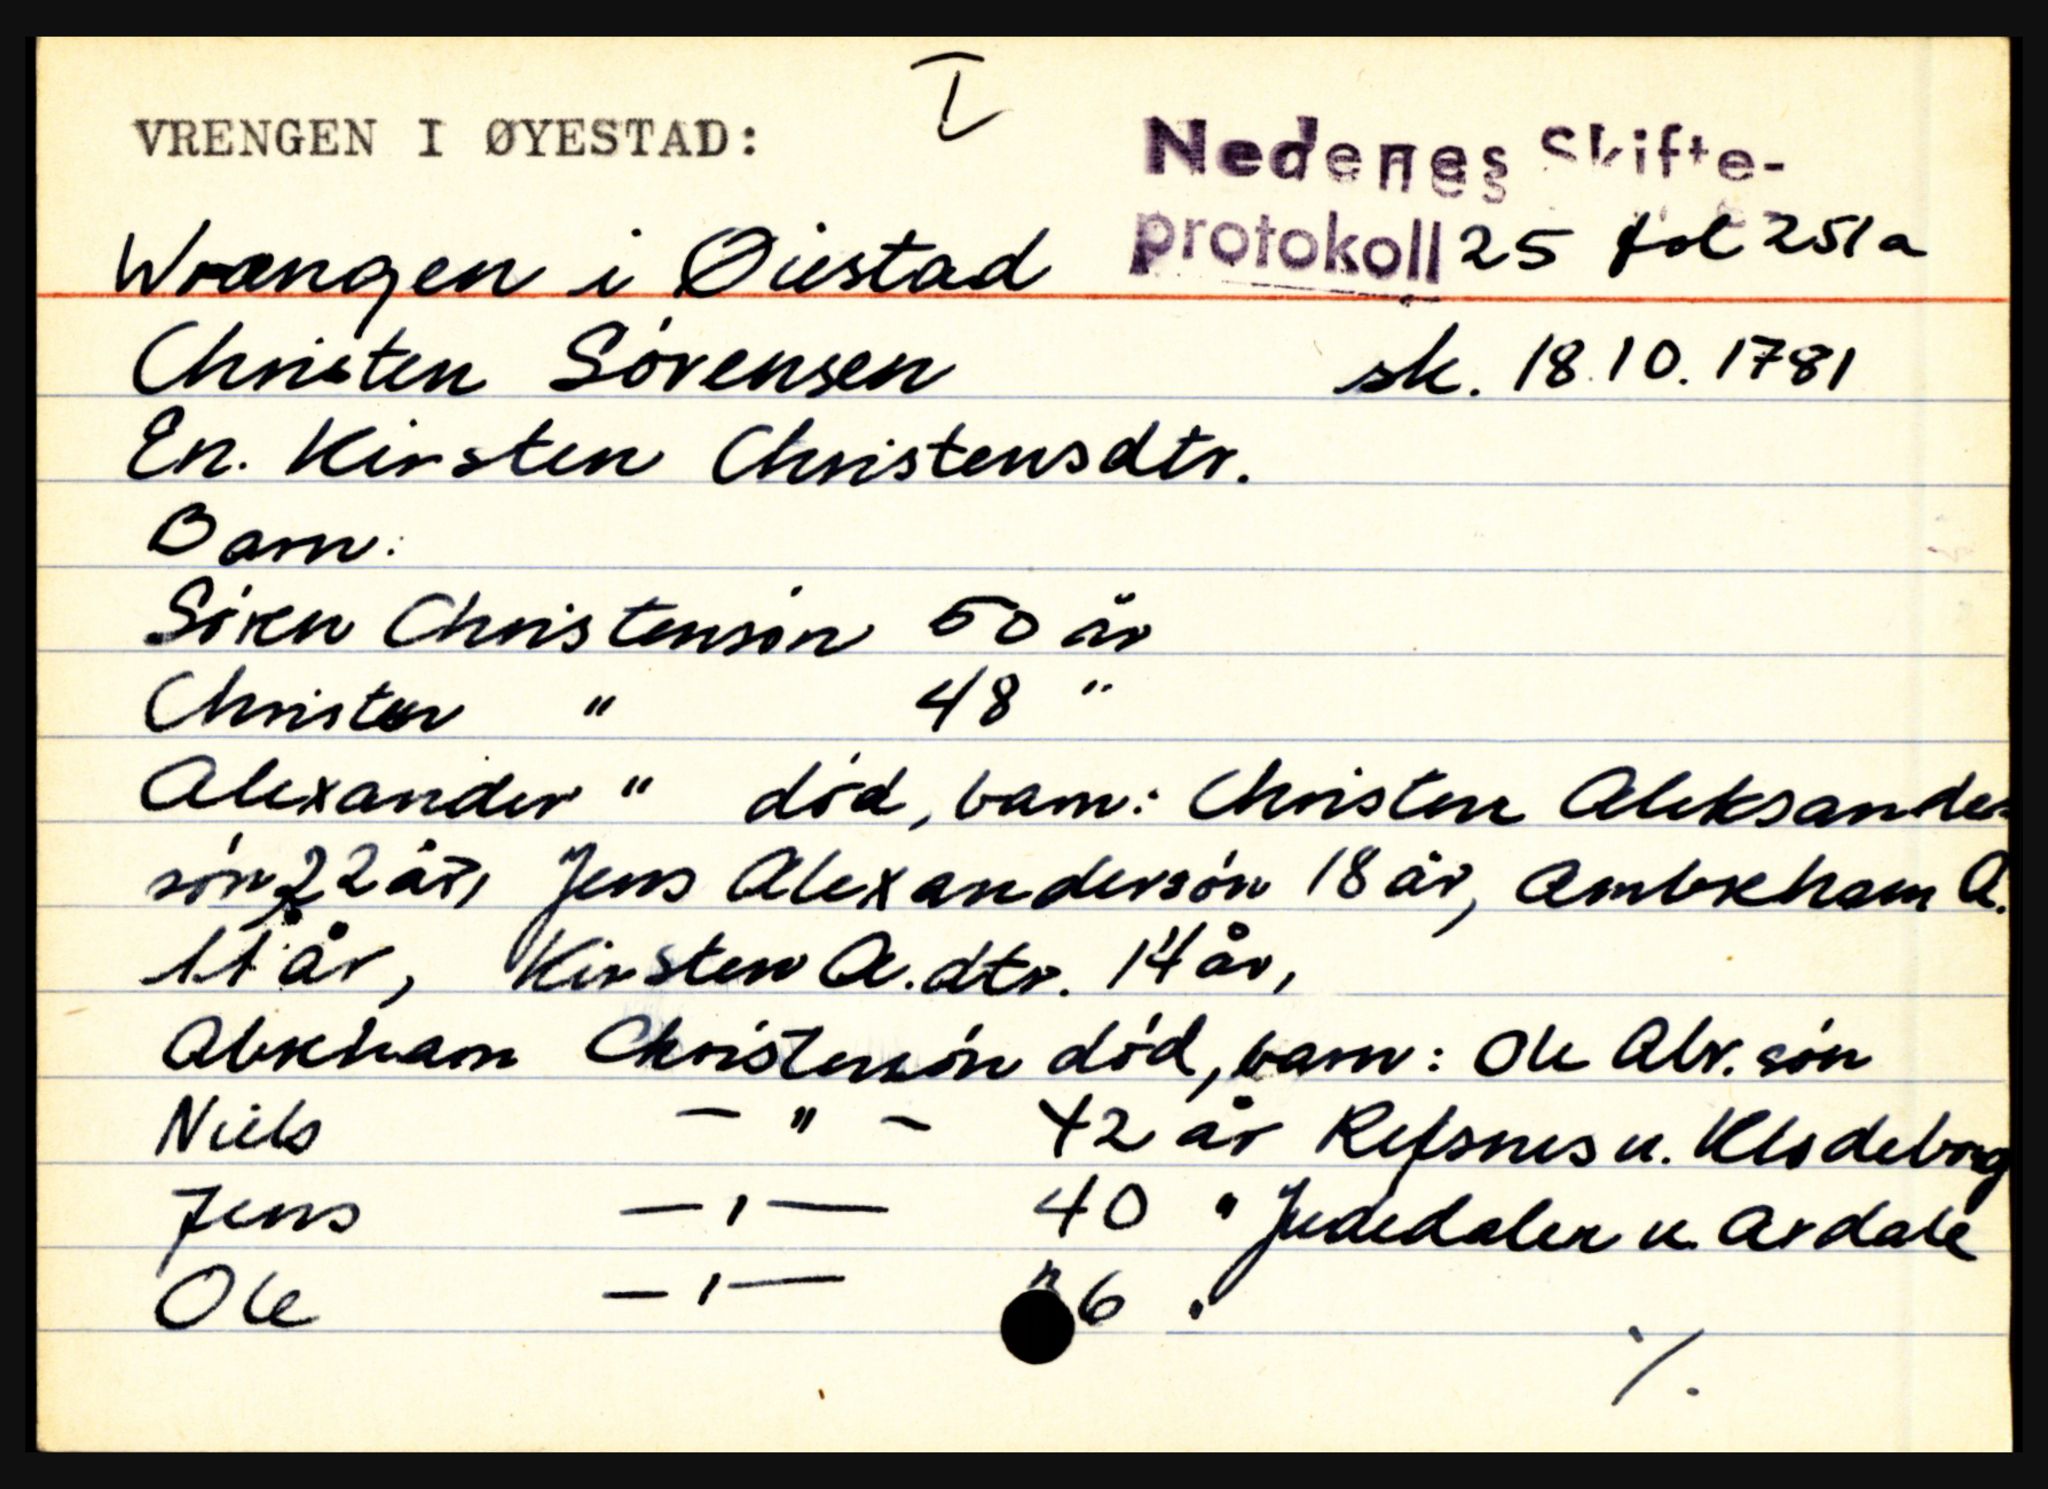 I
VRENGEN I ØYESTAD:
Nedenes Skifte-
protokoll 25 fol 251a
Wrængen i Øiestad
Christen Sörensen sk. 18.10.1781
En. Kirsten Christensdtr.
Barn:
Sören Christensön 50 år
Christen " 48 "
Alexander " död, barn: Christen Aleksander-
sön 22 år, Jens Alexandersön 18 år, Ambreham A.
11 år, Kirsten A.dtr. 14 år,
Abreham Christensön död, barn: Ole Abr. sön
Niels - " - 42 år Refsnes u. Klodeborg
Jens - " - 40 " Judedalen u. Ardale
Ole - " - 6 "
./.